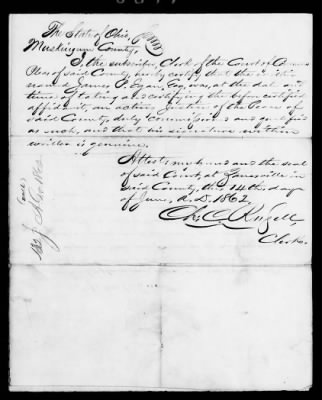 The State of Ohio,
Muskingum County,
I, the subscriber, Clerk of the Court of Common
Pleas of said County, hereby certify that the within
named James P. Egan, Esq., was, at the date and
time of taking and certifying the before certified
affidavit, an acting Justice of the Peace of
said County, duly commissioned and qualified
as such, and that his signature within
written is genuine.
Attest my hand and the seal
of said Court at Zanesville in
said County, this 14th day
of June, A.D. 1862.
Clerk.